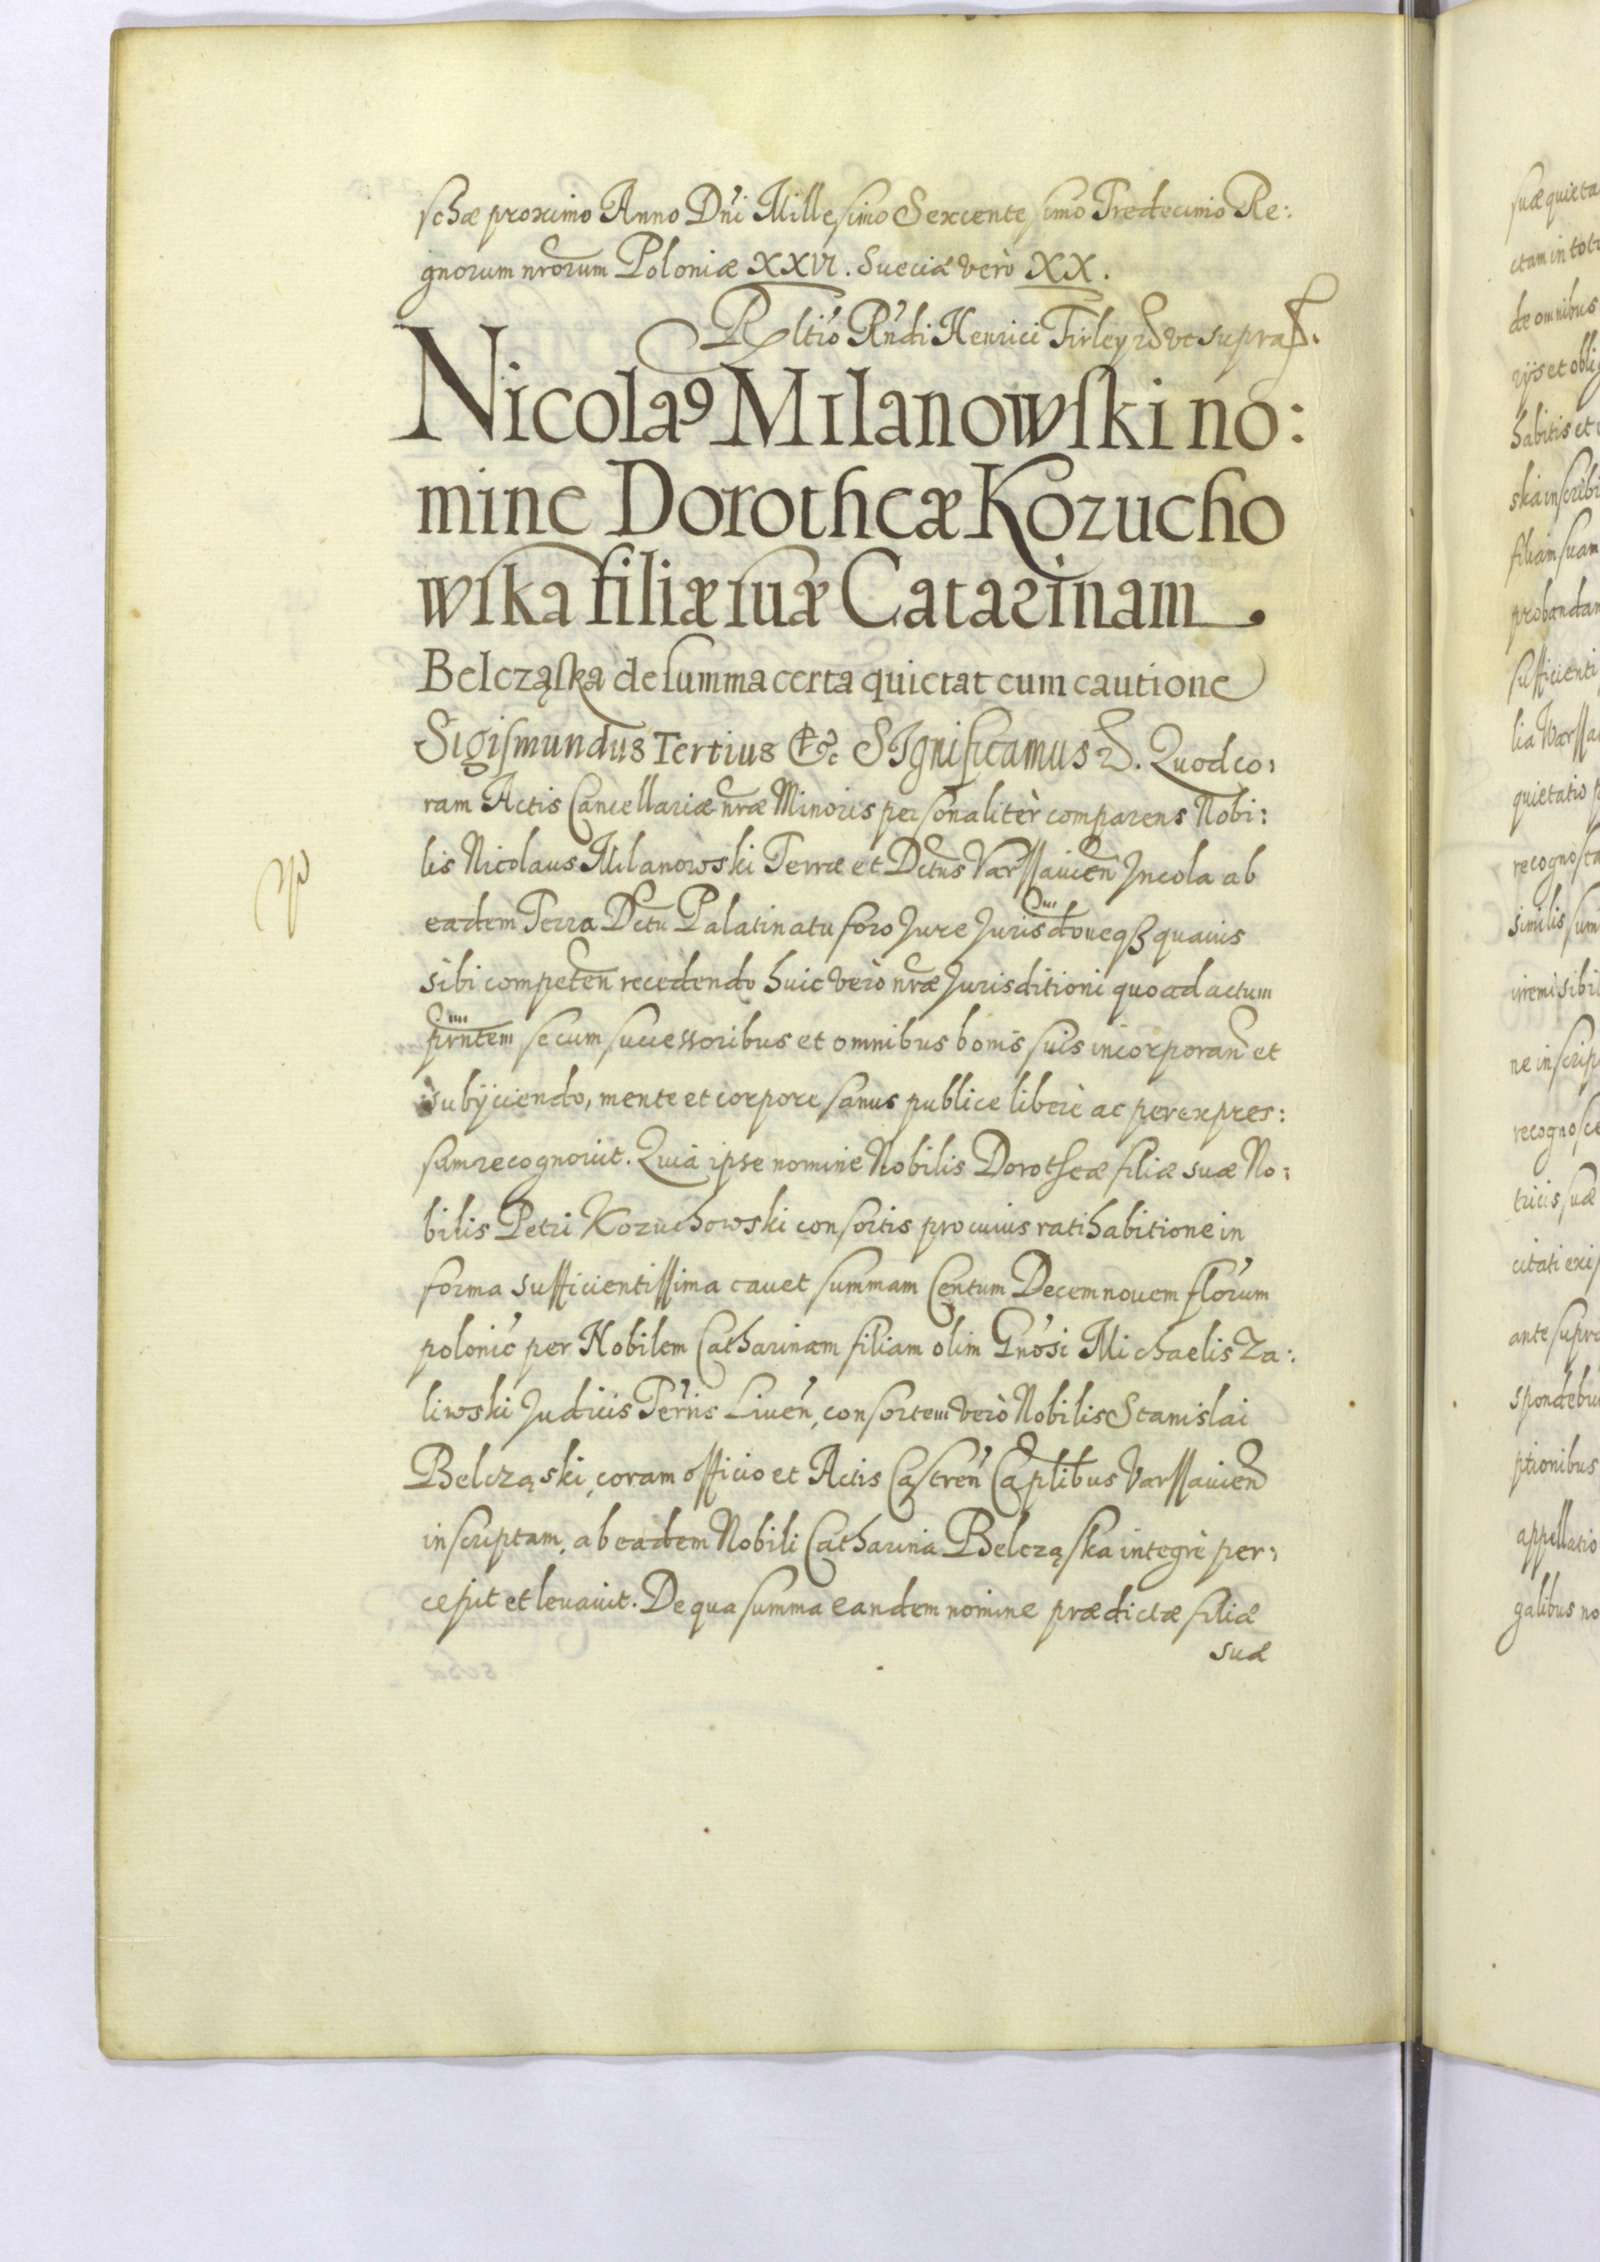 schæ proximo Anno Dn̄i Millesimo Sexcentesimo Tredecimo Re:
gnorum nr̄orum Poloniæ XXVI. Sueciæ verò XX.
Rl̄tio Rn̄di Henrici Firley ut supra.
Nicolaꝰ Milanowski no:
mine Dorotheæ Kozucho
wska filiæ suæ Catarinam
Belcząska de summa certa quietat cum cautione
Sigismundus Tertius &c Significamus. Quod co:
ram Actis Cancellariæ nr̄æ Minoris personalitèr comparens Nobi:
lis Nicolaus Milanowski Terræ et Dctus Varssauien̄ Incola ab
eadem Terra Dctu Palatinatu foro Jure Jurisdoneqȝ quauis
sibi competen̄ recedendo huic verò nr̄æ Jurisditioni quoad actum
pr̄ntem se cum successoribus et omnibus bonis suis incorporan̄ et
subÿciendo, mente et corpore sanus publice liberè ac per expres:
sum recognouit. Quia ipse nomine Nobilis Dorotheæ filiæ suæ No:
bilis Petri Kozuchowski consortis pro cuius ratihabitione in
forma sufficientissima cauet summam Centum Decem nouem flōrum
polonic̄ per Nobilem Catharinam filiam olim Gn̄osi Michaelis Za:
liwski Judicis Terr̄is Liuen̄, consortem verò Nobilis Stanislai
Belcząski, coram officio et Actis Castren̄ Cap̄libus Varssauien̄
inscriptam, ab eadem Nobili Catharina Belcząska integrè per:
cepit et leuauit. De qua summa eandem nomine prædictæ filiæ
suæ
suæ quieta
ctam in tot
de omnibus
habitis et
ska inscrib
filiam suam
probandam
sufficienti
lia Warssa
quietatio
recognosca
similis sum
ne inscrip
recognosce
tricis, suæ
citati exi
ante supra
sponde
ptionibus
appellatio
galibus no